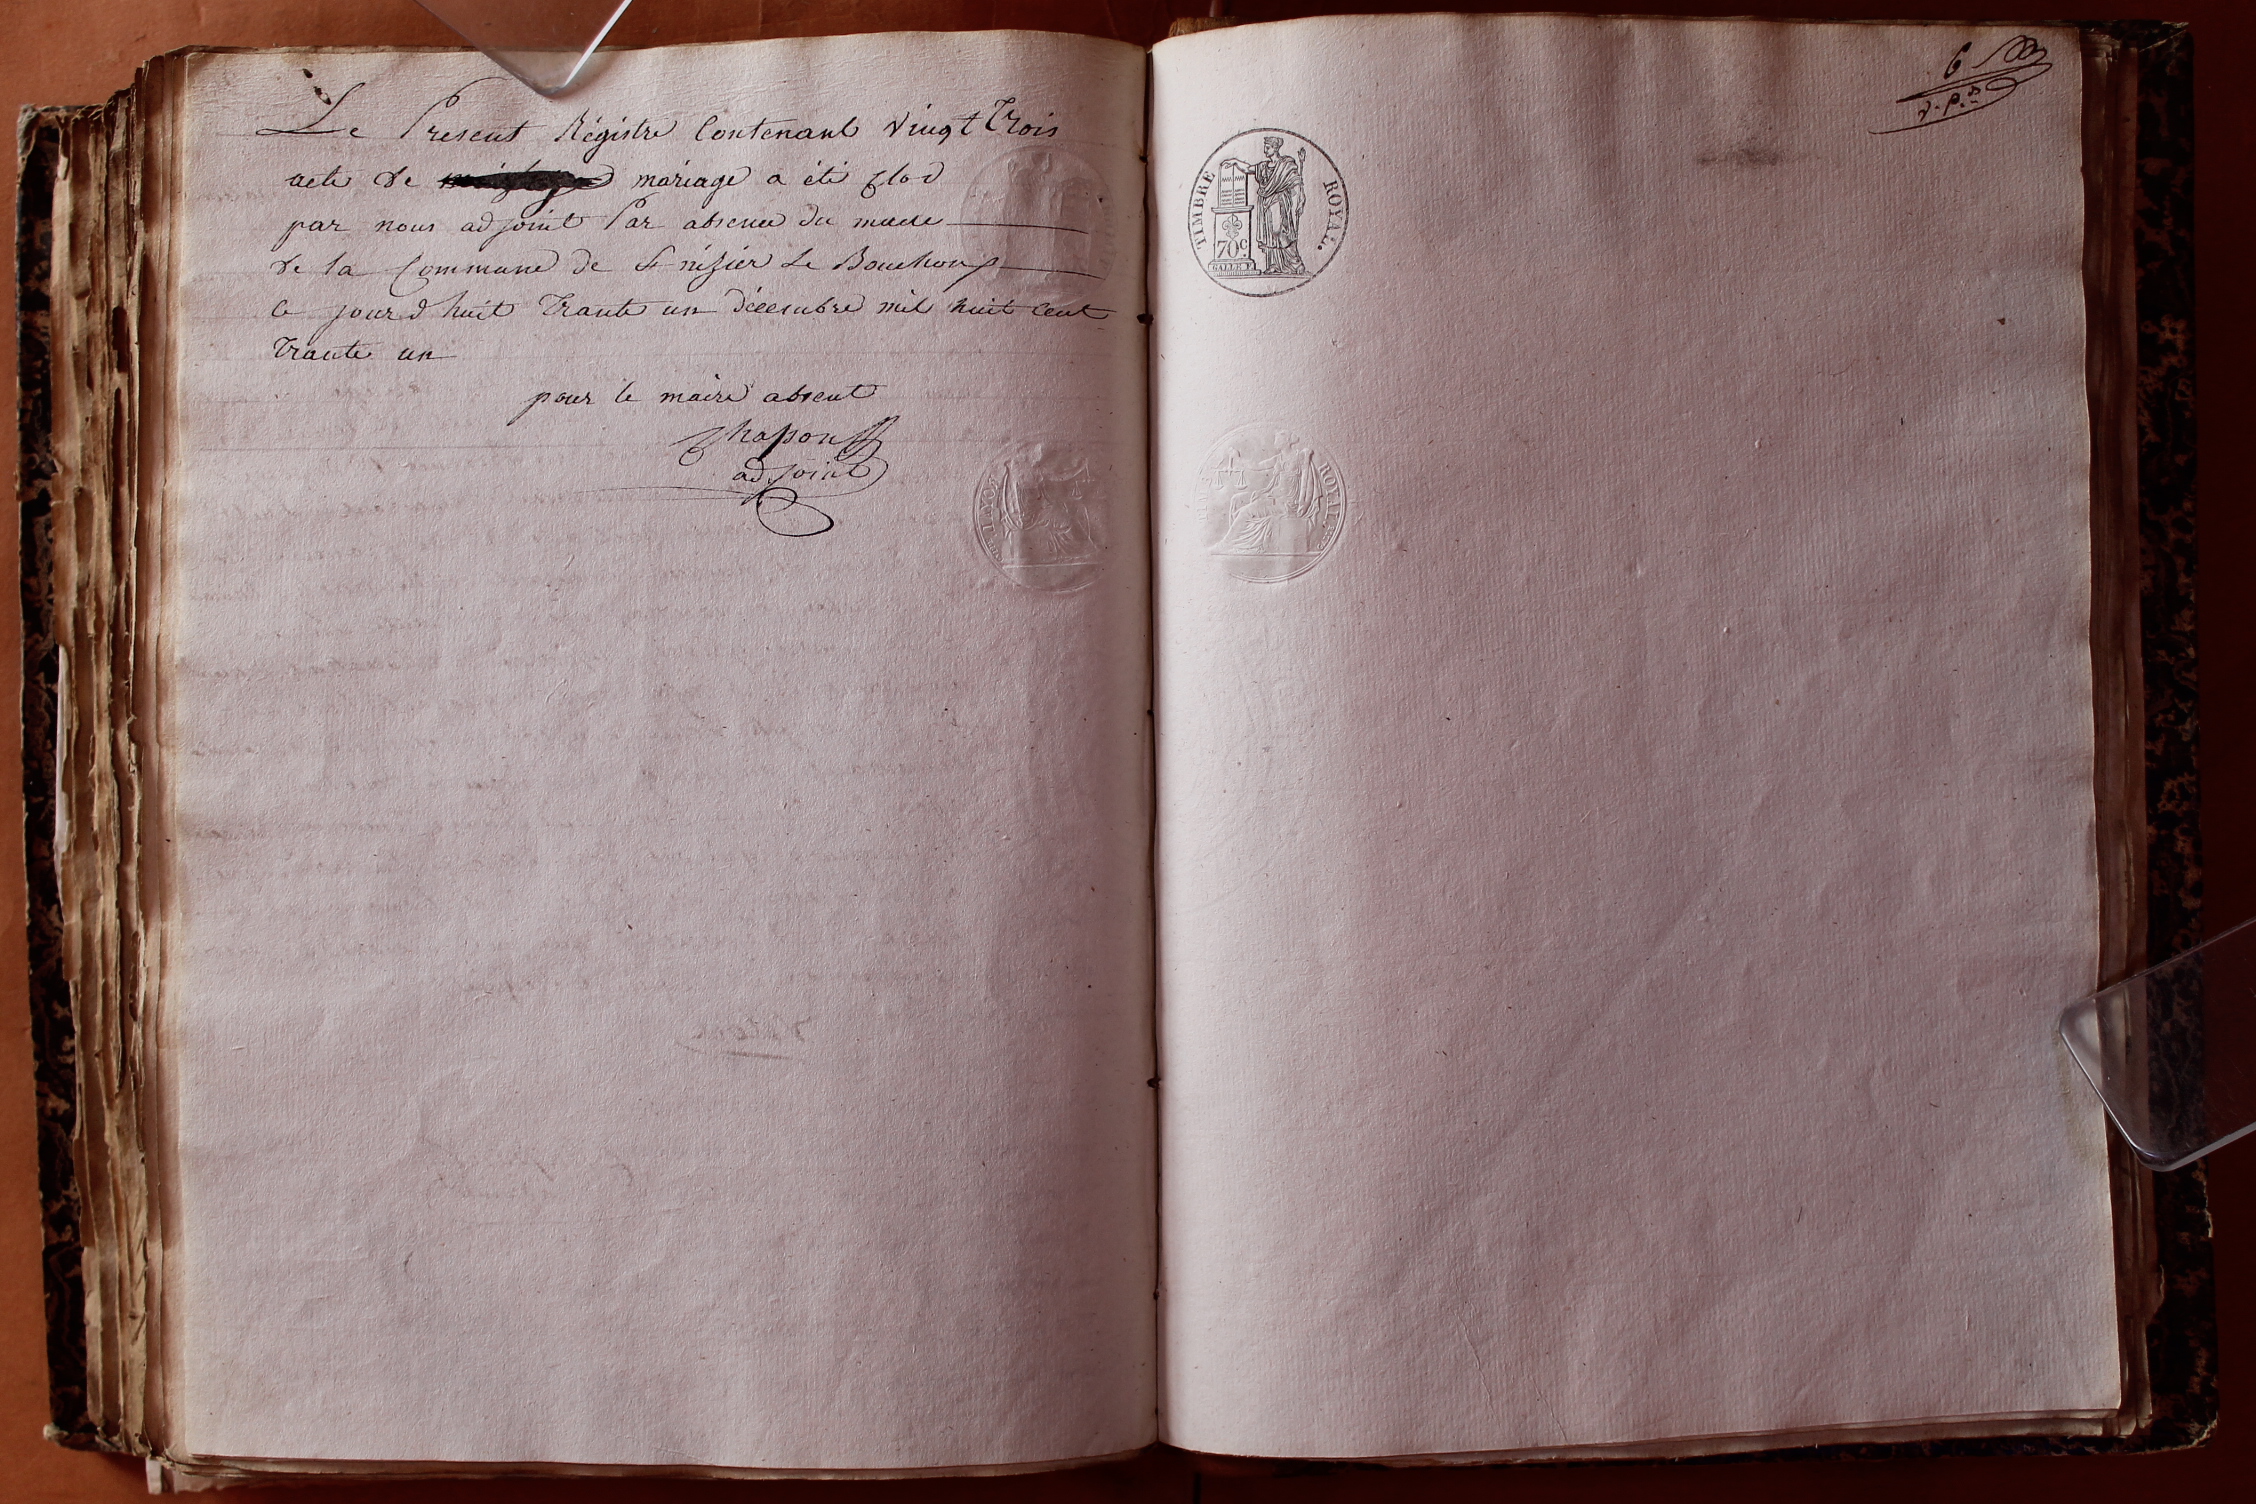 Le Present Régistre Contenant vingt Trois
acte de mariage a été Clod
par nous adjoint Par absence du
de la Commune de St nizier Le Bouchoux
ce jourd huit Trante un décembre mil huit Cent
Trante un
pour le maire absent
Chasson
adjoint
6
v. p. d
TIMBRE ROYAL.
70 C
GALLE F.
ROYAL